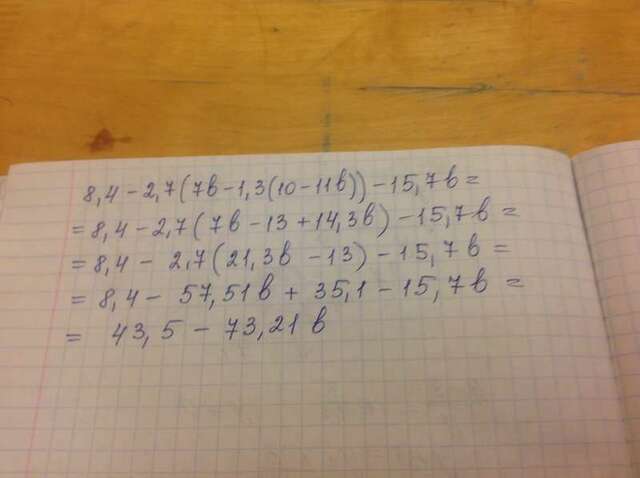 8,4 - 2,7(7b - 1,3(10 - 11b)) - 15,7b =
= 8,4 - 2,7(7b - 13 + 14,3b) - 15,7b =
= 8,4 - 2,7(21,3b - 13) - 15,7b =
= 8,4 - 57,51b + 35,1 - 15,7b =
= 43,5 - 73,21b